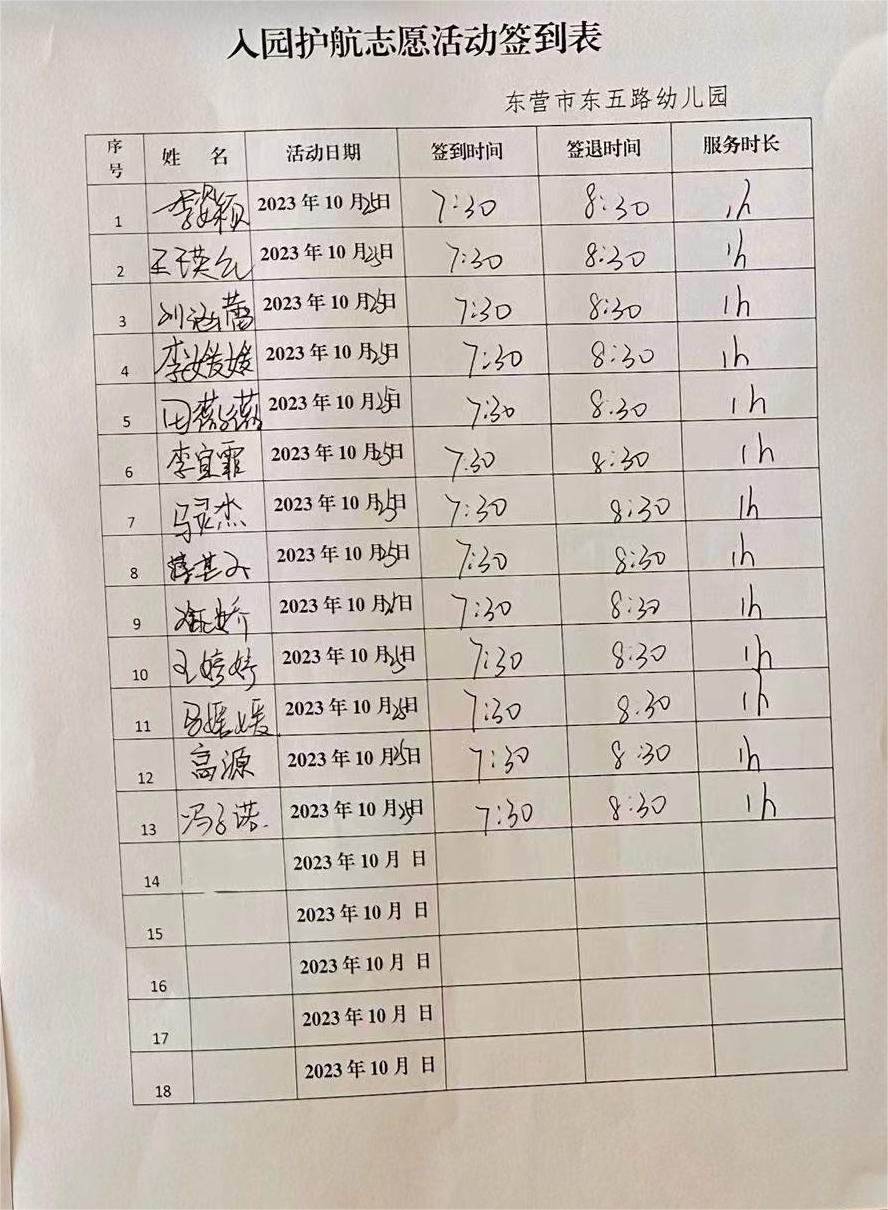 入园护航志愿活动签到表
东营市东五路幼儿园
序号 姓 名 活动日期 签到时间 签退时间 服务时长
1 2023年10月25日 7:30 8:30 1h
2 王瑛允 2023年10月25日 7:30 8:30 1h
3 刘涵蕾 2023年10月25日 7:30 8:30 1h
4 李媛媛 2023年10月25日 7:30 8:30 1h
5 田薇薇 2023年10月25日 7:30 8:30 1h
6 李宜霏 2023年10月25日 7:30 8:30 1h
7 马灵杰 2023年10月25日 7:30 8:30 1h
8 薛其文 2023年10月25日 7:30 8:30 1h
9 2023年10月25日 7:30 8:30 1h
10 王婷婷 2023年10月25日 7:30 8:30 1h
11 马媛媛 2023年10月25日 7:30 8:30 1h
12 高源 2023年10月25日 7:30 8:30 1h
13 冯子诺 2023年10月25日 7:30 8:30 1h
14 2023年10月 日
15 2023年10月 日
16 2023年10月 日
17 2023年10月 日
18 2023年10月 日